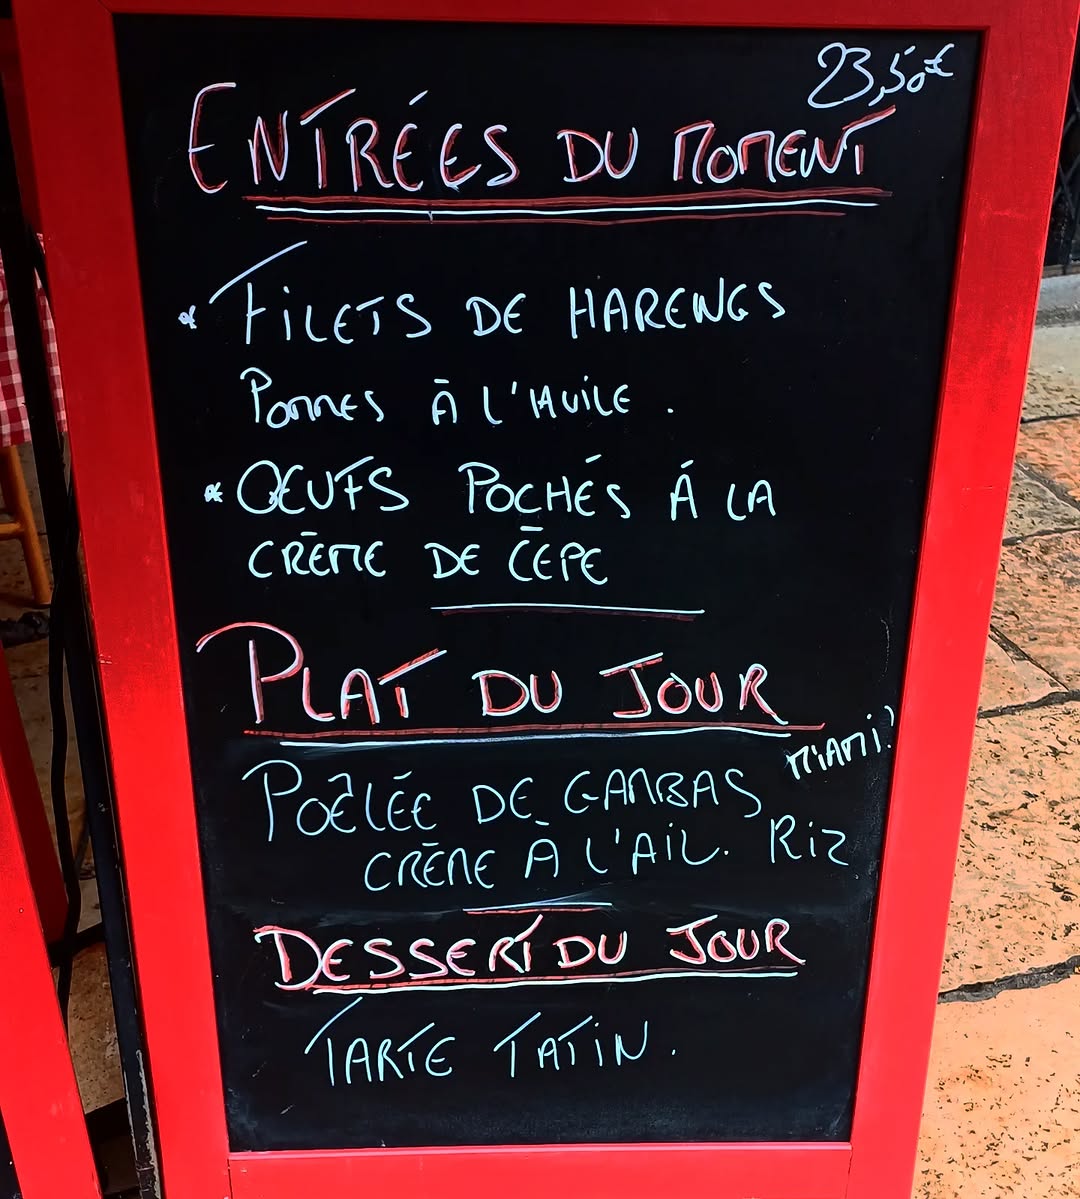 23,50€
ENTRÉES DU MOMENT
* FILETS DE HARENGS
POMMES À L'HUILE.
* ŒUFS POCHÉS À LA
CRÈME DE CEPE
PLAT DU JOUR
MIAM!
POÊLÉE DE GAMBAS
CRÈME À L'AIL. RIZ
DESSERT DU JOUR
TARTE TATIN.